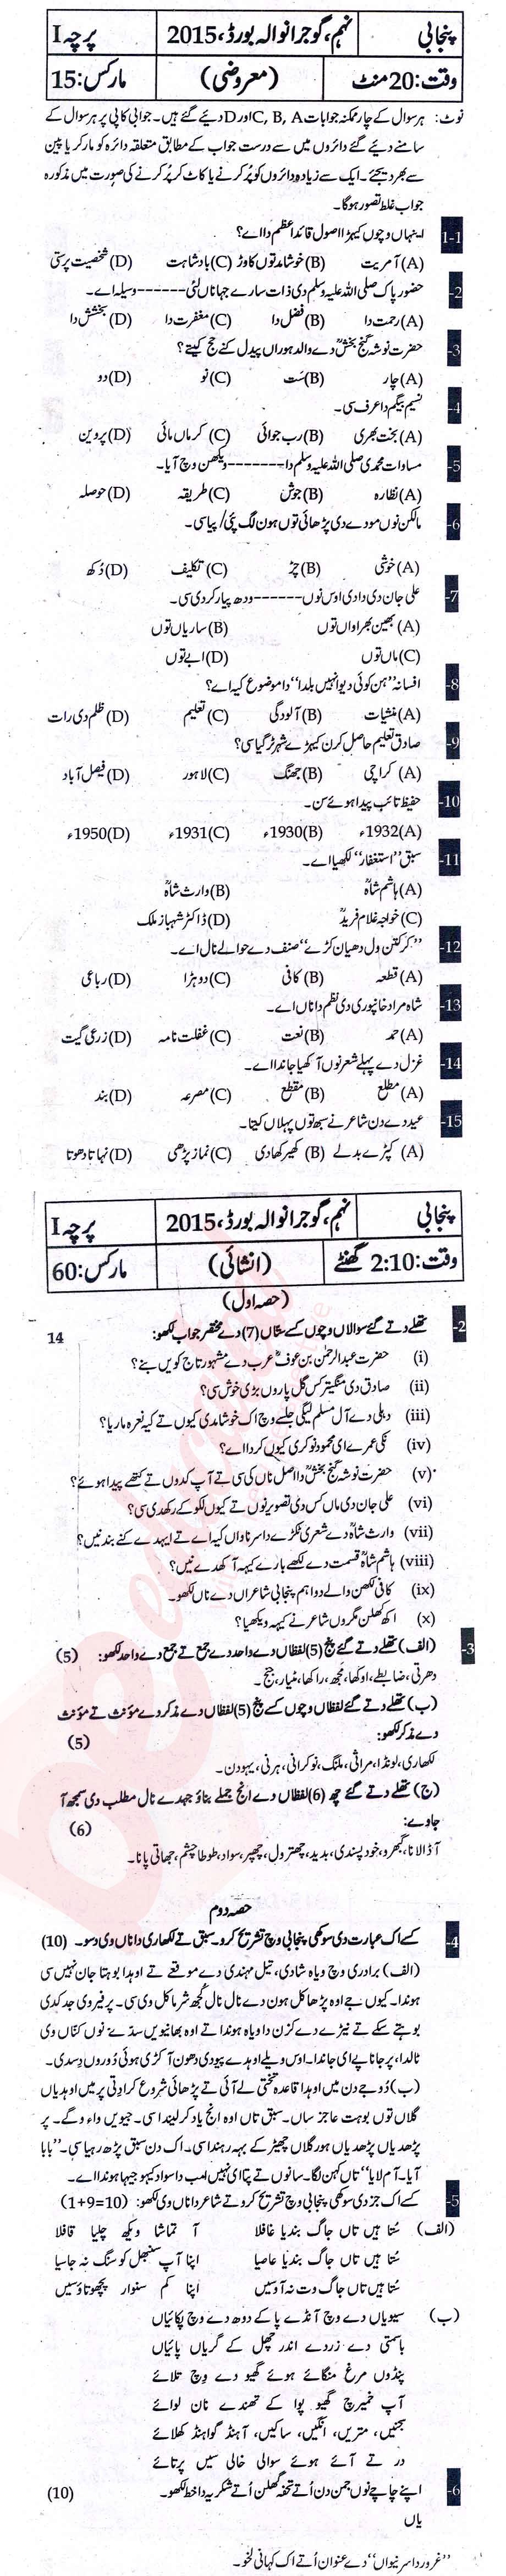 پنجابی
نہم، گوجرانوالہ بورڈ، 2015
پرچہ I
وقت: 20 منٹ
(معروضی)
مارکس: 15
نوٹ: ہر سوال کے چار ممکنہ جوابات C, B, A اور D دیئے گئے ہیں۔ جوابی کاپی پر ہر سوال کے
سامنے دیئے گئے دائروں میں سے درست جواب کے مطابق متعلقہ دائرہ کو مارکر یا پین
سے بھر دیجئے۔ ایک سے زیادہ دائروں کو پُر کرنے یا کاٹ کر پُر کرنے کی صورت میں مذکورہ
جواب غلط تصور ہوگا۔
1-1 اینہاں وچوں کیہڑا اصول قائداعظم دا اے؟
(A) آمریت (B) خوشامد توں کاوڑ (C) بادشاہت (D) شخصیت پرستی
-2 حضور پاک صلی اللہ علیہ وسلم دی ذات سارے جہاناں لئی ------ وسیلہ اے۔
(A) رحمت دا (B) فضل دا (C) مغفرت دا (D) بخشش دا
-3 حضرت نوشہ گنج بخشؒ دے والد ہوراں پیدل کنے حج کیتے؟
(A) چار (B) ست (C) نو (D) دو
-4 نسیم بیگم دا عرف سی۔
(A) بخت بھری (B) رب جوائی (C) کرماں مائی (D) پروین
-5 مساوات محمدی صلی اللہ علیہ وسلم دا ------- ویکھن وچ آیا۔
(A) نظارہ (B) جوش (C) طریقہ (D) حوصلہ
-6 مالکن نوں مودے دی پڑھائی توں ہون لگ پئی/پیا سی۔
(A) خوشی (B) چڑ (C) تکلیف (D) دُکھ
-7 علی جان دی دادی اوس نوں ------ ودھ پیار کردی سی۔
(A) بھین بھراواں توں (B) ساریاں توں
(C) ماں توں (D) ابے توں
-8 افسانہ "ہن کوئی دیوا نہیں بلدا" دا موضوع کیہ اے؟
(A) منشیات (B) آلودگی (C) تعلیم (D) ظلم دی رات
-9 صادق تعلیم حاصل کرن کیہڑے شہر ٹر گیا سی؟
(A) کراچی (B) جھنگ (C) لاہور (D) فیصل آباد
-10 حفیظ تائب پیدا ہوئے سن۔
(A) 1932ء (B) 1930ء (C) 1931ء (D) 1950ء
-11 سبق "استغفار" لکھیا اے۔
(A) ہاشم شاہؒ (B) وارث شاہؒ
(C) خواجہ غلام فریدؒ (D) ڈاکٹر شہباز ملک
-12 "کر کتن ول دھیان کڑے" صنف دے حوالے نال اے۔
(A) قطعہ (B) کافی (C) دوہڑا (D) رباعی
-13 شاہ مراد خانپوری دی نظم دا ناں اے۔
(A) حمد (B) نعت (C) غفلت نامہ (D) زرعی گیت
-14 غزل دے پہلے شعر نوں آکھیا جاندا اے۔
(A) مطلع (B) مقطع (C) مصرعہ (D) بند
-15 عید دے دن شاعر نے سبھ توں پہلاں کیتا۔
(A) کپڑے بدلے (B) کھیر کھادی (C) نماز پڑھی (D) نہاتا دھوتا
پنجابی
نہم، گوجرانوالہ بورڈ، 2015
پرچہ I
وقت: 2:10 گھنٹے
(انشائی)
مارکس: 60
(حصہ اول)
-2 تھلے دتے گئے سوالاں وچوں کسے ستاں (7) دے مختصر جواب لکھو: 14
(i) حضرت عبدالرحمٰن بن عوفؓ عرب دے مشہور تاجر کویں بنے؟
(ii) صادق دی منگیتر کس گل پاروں بڑی خوش سی؟
(iii) دہلی دے آل مسلم لیگی جلسے وچ اک خوشامدی کیوں تے کیہ نعرہ ماریا؟
(iv) نکی عمرے ای محمود نوکری کیوں کردا اے؟
(v) حضرت نوشہ گنج بخشؒ دا اصل ناں کی سی تے آپ کدوں تے کتھے پیدا ہوئے؟
(vi) علی جان دی ماں کس دی تصویر نوں تے کیوں لکو کے رکھدی سی؟
(vii) وارث شاہؒ دے شعری ٹکڑے دا سرناواں کیہ اے تے ایہدے کنے بند نیں؟
(viii) ہاشم شاہؒ قسمت دے لکھے بارے کیہہ آکھدے نیں؟
(ix) کافی لکھن والے دو اہم پنجابی شاعراں دے ناں لکھو۔
(x) اکھ کھلن مگروں شاعر نے کیہہ ویکھیا؟
-3 (الف) تھلے دتے گئے پنج (5) لفظاں دے واحد دے جمع تے جمع دے واحد لکھو: (5)
دھرتی، ضابطے، اوکھا، مجھ، راکھا، منیار، جج۔
(ب) تھلے دتے گئے لفظاں وچوں کسے پنج (5) لفظاں دے مذکر دے مؤنث تے مؤنث
دے مذکر لکھو: (5)
لکھاری، لونڈا، مراثی، ملنگ، نوکرانی، ہرنی، یہودن۔
(ج) تھلے دتے گئے چھ (6) لفظاں دے انج جملے بناؤ جہدے نال مطلب دی سمجھ آ
جاوے: (6)
آڈا لانا، گبھرو، خود پسندی، بدید، چھترول، چھپر، سواد، طوطا چشم، جھاتی پانا۔
حصہ دوم
-4 کسے اک عبارت دی سوکھی پنجابی وچ تشریح کرو۔ سبق تے لکھاری دا ناں وی دسو۔ (10)
(الف) برادری وچ ویاہ شادی، تیل مہندی دے موقعے تے اوہدا بوہتا جان نہیں سی
ہوندا۔ کیوں جے اوہ پڑھاکل ہون دے نال نال کجھ شرماکل وی سی۔ پر فیر وی جد کدی
بوہتے سکے تے نیڑے دے کزن دا ویاہ ہوندا تے اوہ بھانویں سدے نوں کناں وی
ٹالدا، پر جانا پے ای جاندا۔ اوس ویلے اوہدے پیو دی دھون آکڑی ہوئی دُوروں دِسدی۔
(ب) دُوجے دن میں اوہدا قاعدہ تختی لے آئی تے پڑھائی شروع کرادتی پر میں اوہدیاں
گلاں توں بوہت عاجز ساں۔ سبق تاں اوہ انج یاد کر لیندا سی۔ جیویں واء وگے۔ پر
پڑھدیاں پڑھدیاں ہور گلاں چھیڑ کے بہہ رہندا سی۔ اک دن سبق پڑھ رہیا سی۔ "بابا
آیا۔ آم لایا" تاں کہن لگا۔ سانوں تے پتا ای نہیں امب دا سواد کیہو جیہا ہوندا اے۔
-5 کسے اک جز دی سوکھی پنجابی وچ تشریح کرو تے شاعر دا ناں وی لکھو: (1+9=10)
(الف) سُتا ہیں تاں جاگ بندیا غافلا آ تماشا ویکھ چلیا قافلا
سُتا ہیں تاں جاگ بندیا عاصیا اپنا آپ سنبھل کو سنگ نہ جاسیا
سُتا ہیں تاں جاگ وت نہ آوسیں اپنا کم سنوار پچھوتاؤسیں
(ب) سیویاں دے وچ آنڈے پا کے دودھ دے وچ پکائیاں
باسمتی دے زردے اندر چھل کے گریاں پائیاں
پنڈوں مرغ منگائے ہوئے گھیو دے وچ تلائے
آپ خمیرچ گھیو پوا کے تھندے نان لوائے
بجنیں، متریں، انگیں، ساکیں، آہنڈ گواہنڈ کھلائے
در تے آئے ہوئے سوالی خالی سیں پرتائے
-6 اپنے چاچے نوں جمن دن اُتے تحفہ گھلن اُتے شکریہ دا خط لکھو۔ (10)
یاں
"غرور دا سر نیواں" دے عنوان اُتے اک کہانی لکھو۔